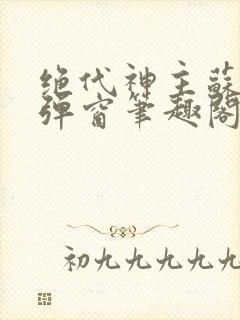 绝代神主蘇
弹窗筆趣閣
初九九九九九